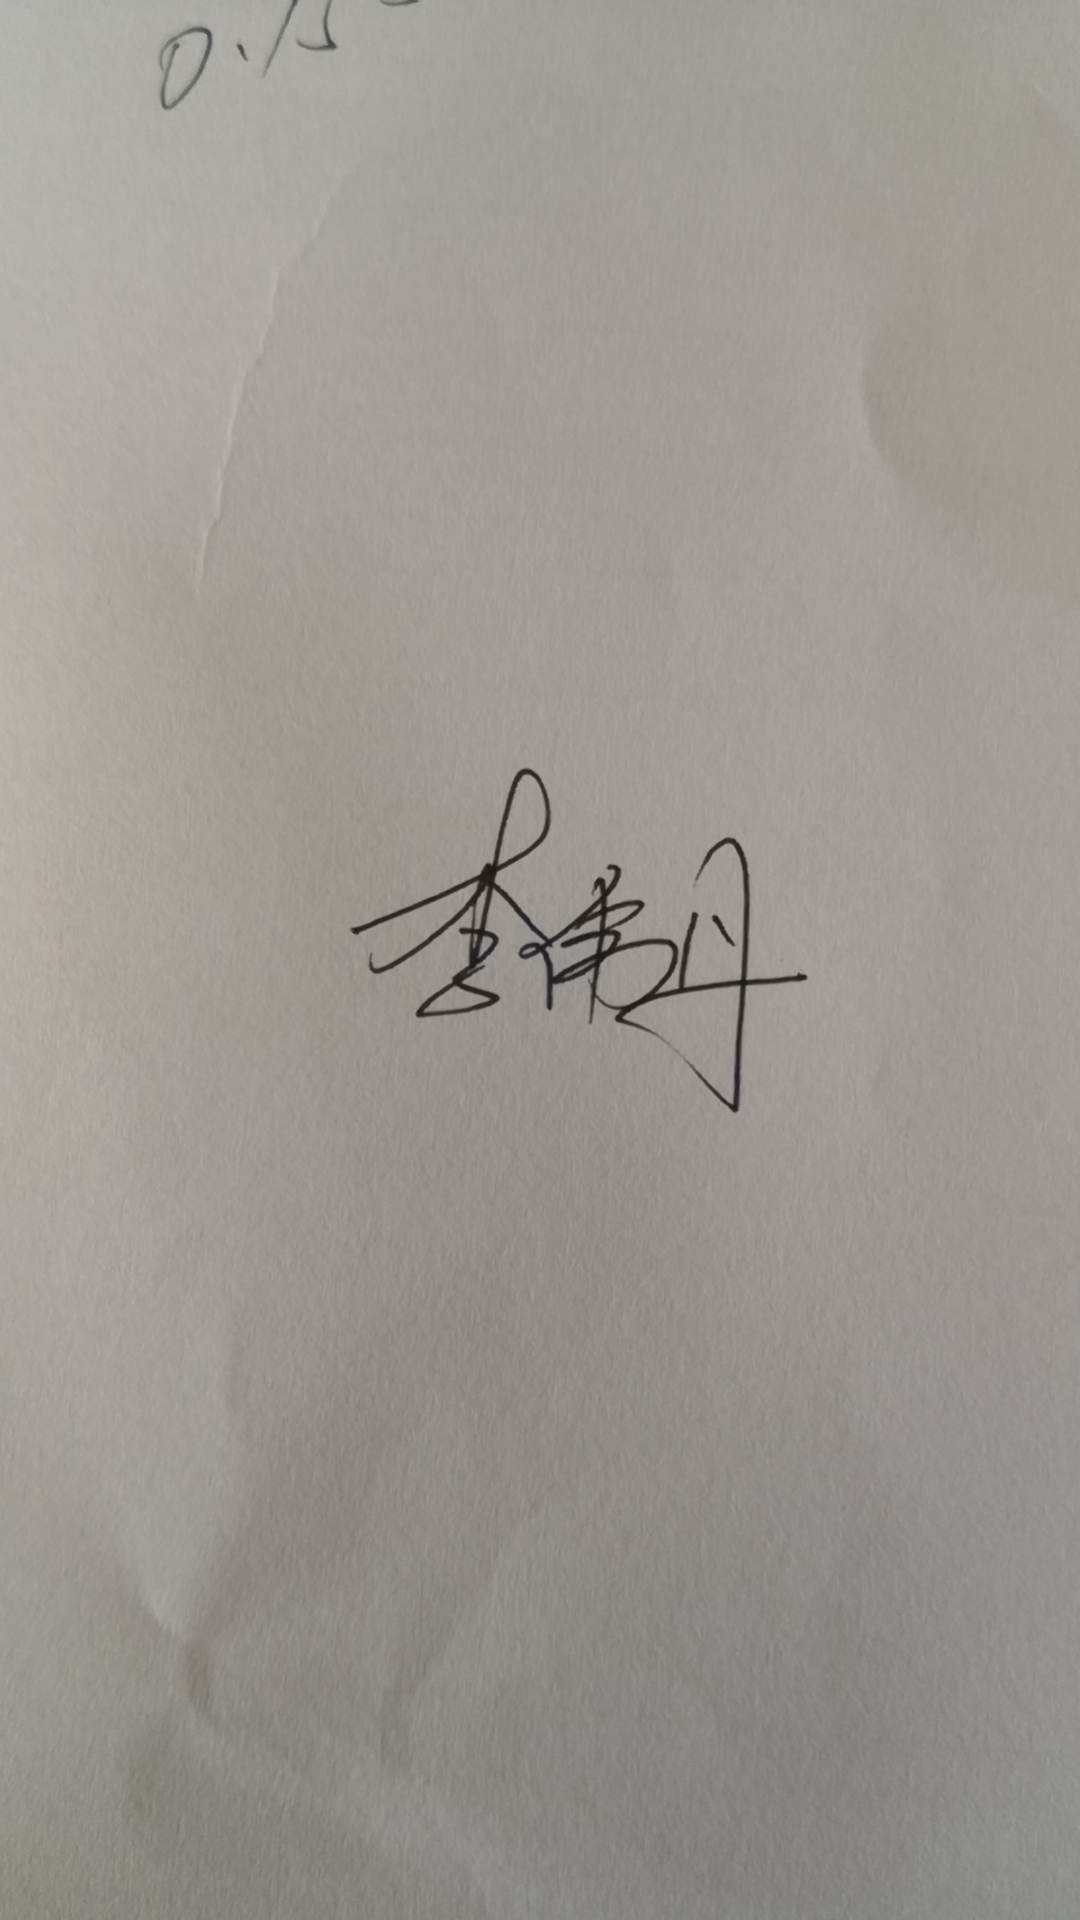 0.15
李伟丹